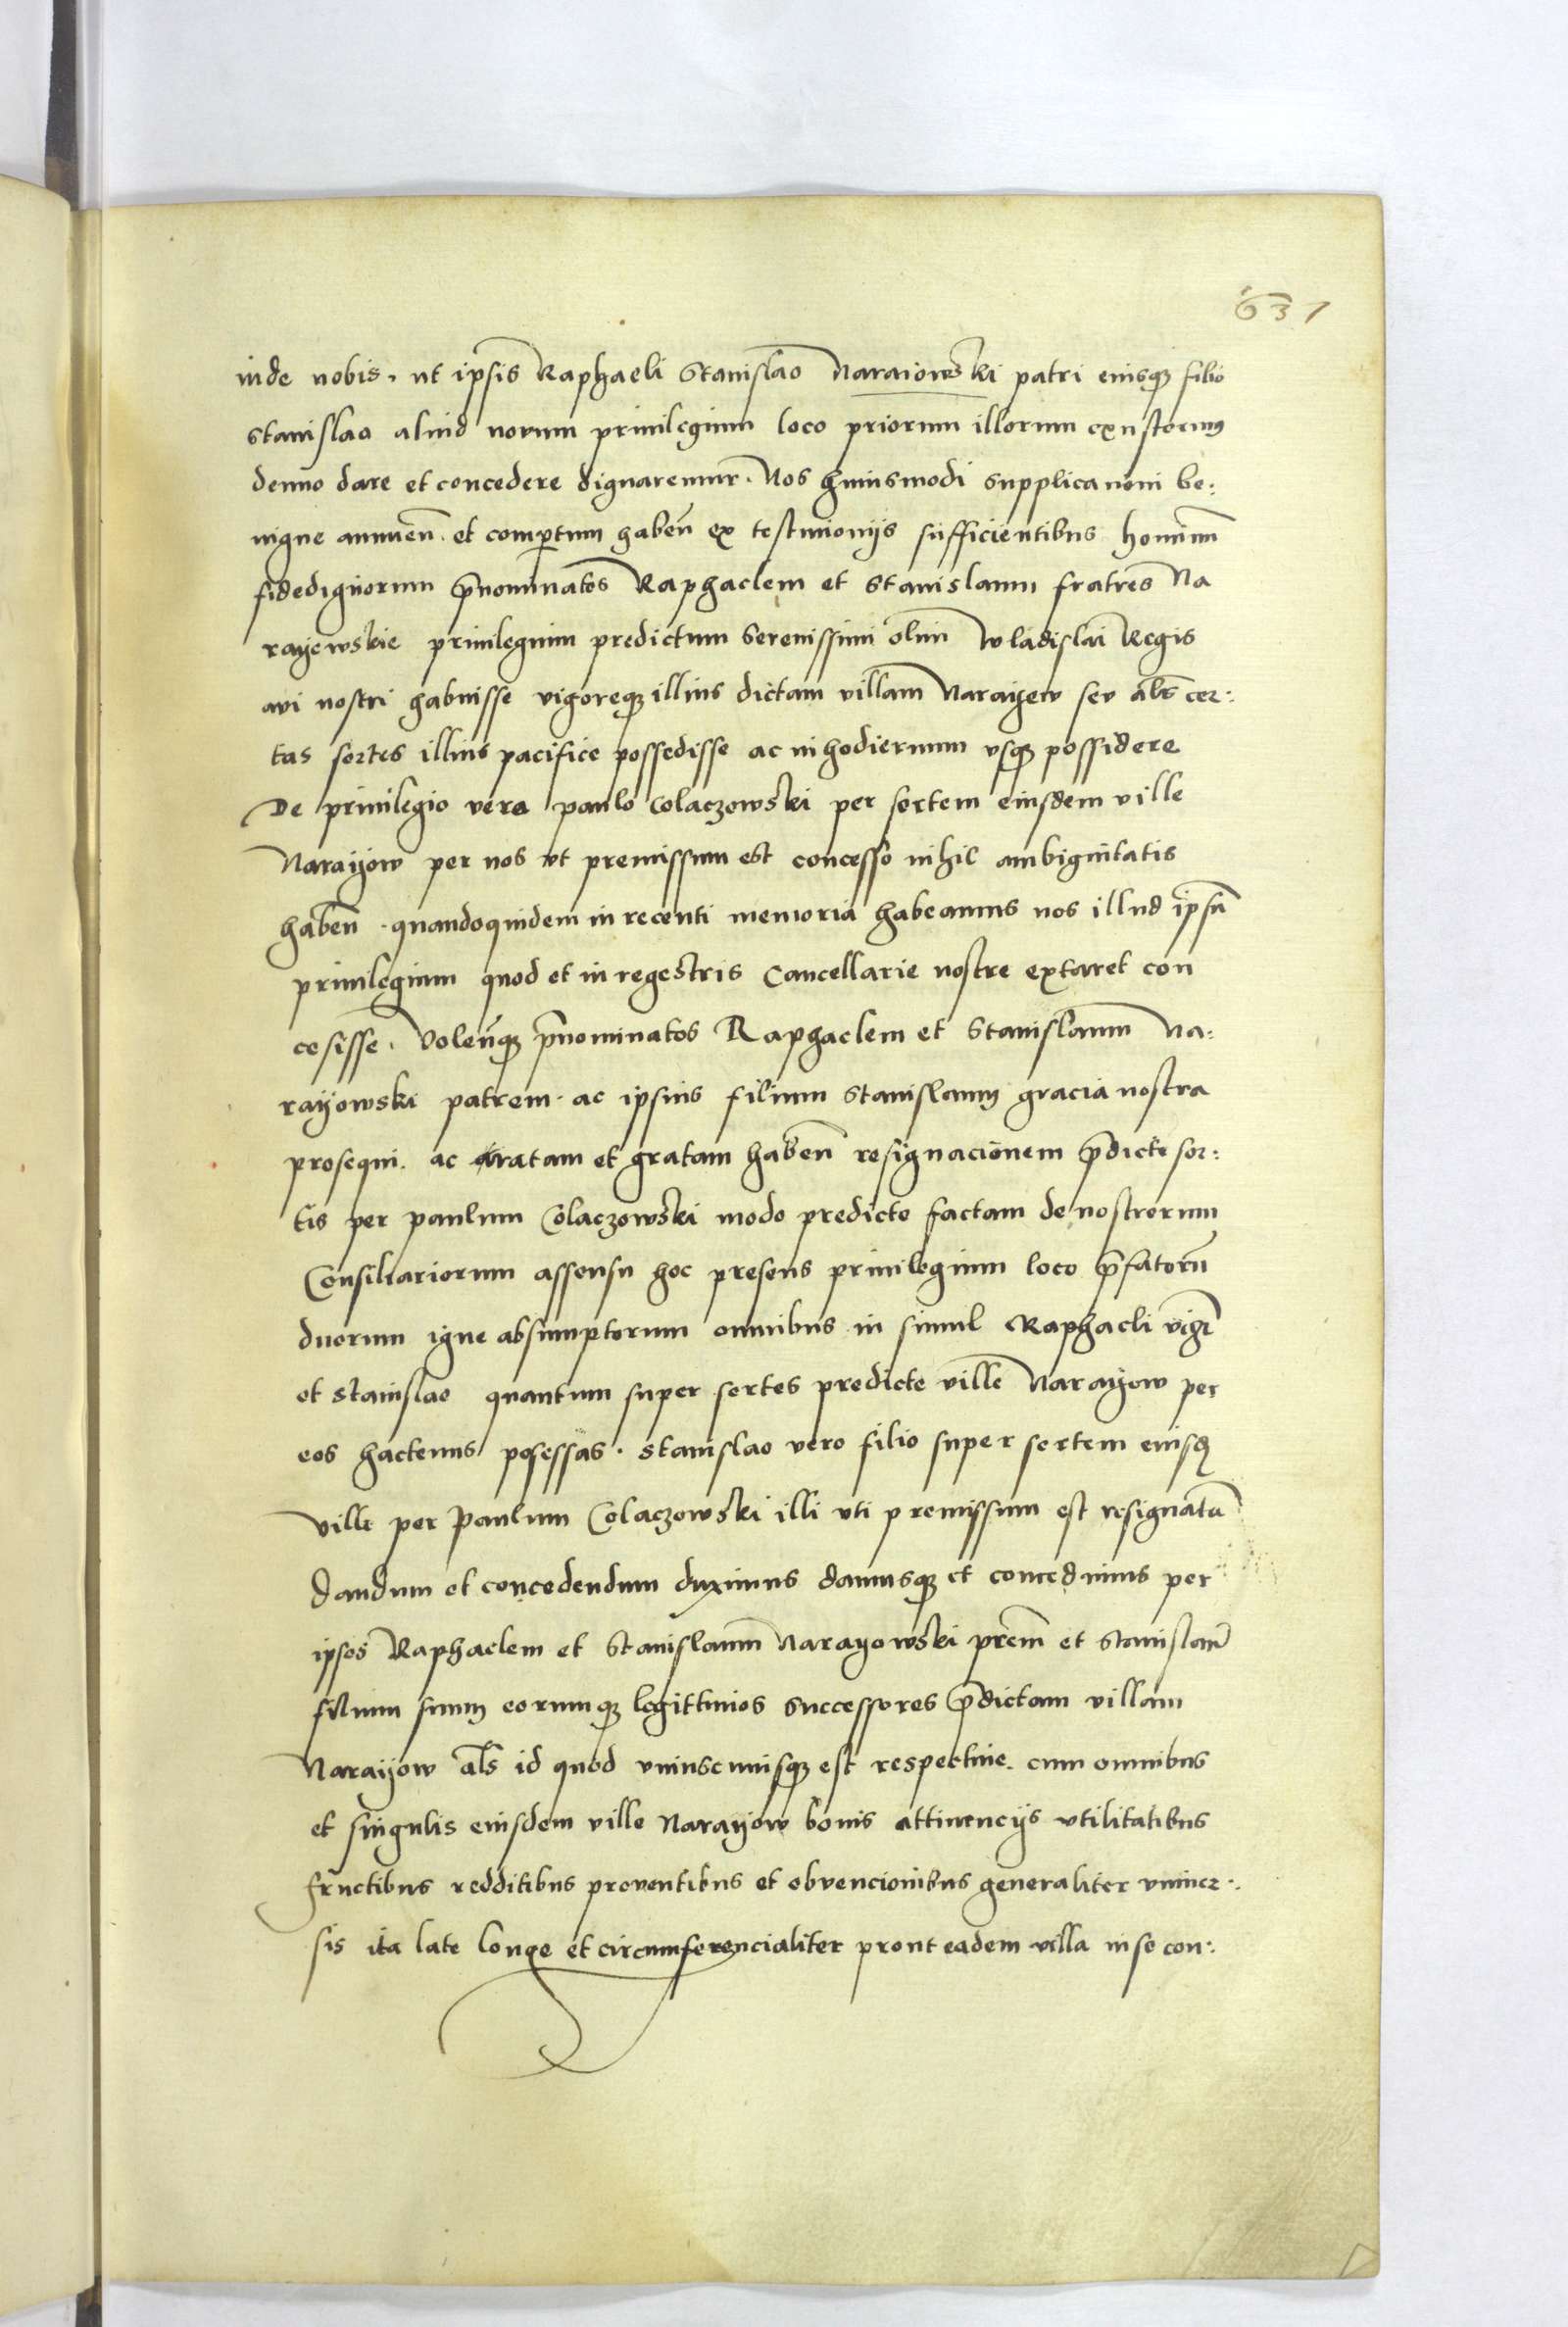 631
inde nobis. ut ipsis Raphaeli Stanislao Naraiowski patri eiusq filio
stanislao aliud novum privilegium loco priorum illorum exustorum
denuo dare et concedere dignaremur. Nos huiusmodi supplicationi be:
nigne annuen̄. et compertum haben̄ ex testimonijs sufficientibus hominum
fidedignorum p̄nominatos Raphaelem et Stanislaum fratres Na
rayewskie privilegium predictum Serenissimi olim Wladislai Regis
avi nostri habuisse vigoreq illius dictam villam Narayew seu al̄s cer:
tas sortes illius pacifice possedisse ac in hodiernum usq possidere
De privilegio vero paulo Colaczowski per sortem eiusdem ville
Narayow per nos ut premissum est concesso nihil ambiguitatis
haben̄. quandoquidem in recenti memoria habeamus nos illud ipsū
privilegium quod et in regestris Cancellarie nostre extaret con
cesisse. Volen̄q p̄nominatos Raphaelem et Stanislaum Na:
rayowski patrem. ac ipsius filium Stanislaum gracia nostra
prosequi. ac ratam et gratam haben̄ resignacionem p̄dicte sor:
tis per paulum Colaczowski modo predicto factam de nostrorum
Consiliariorum assensu hoc presens privilegium loco p̄fatorū
duorum igne absumptorum omnibus in simul Raphaeli
et Stanislao quantum super sortes predicte ville Narayow per
eos hactenus posessas. Stanislao vero filio super sortem eiusd
ville per Paulum Colaczowski illi uti premissum est resignatā
dandum et concedendum duximus damusq et concedimus per
ipsos Raphaelem et Stanislaum Narayowski pr̄em et Stanislaū
filium suum eorumq legittimos successores p̄dictam villam
Narayow al̄s id quod uniuscuiusq est respective. cum omnibus
et singulis eiusdem ville Narayow bonis attinencijs utilitatibus
fructibus redditibus proventibus et obvencionibus generaliter univer:
sis ita late longe et circumferencialiter prout eadem villa in se con: